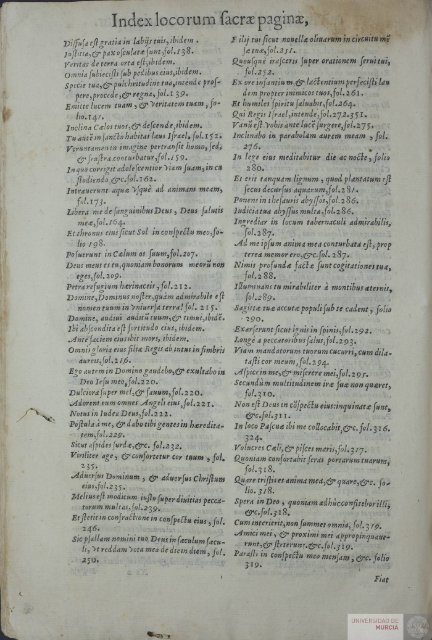 Index locorum sacræ paginæ,
Diffusa est gratia in labijs tuis, ibidem.
Iustitia, & pax osculatæ sunt. fol. 138.
Veritas de terra orta est, ibidem.
Omnia subiecisti sub pedibus eius, ibidem.
Specie tua, & pulchritudine tua, intende prospe-
pere, procede, & regna, fol. 139.
Emitte lucem tuam, & veritatem tuam, fo-
lio. 141.
Inclina Cælos tuos, & descende, ibidem.
Tu autẽ in sancto habitas laus Israel, fol. 152.
Veruntamen in imagine pertransit homo, sed,
& frustra conturbatur, fol. 159.
In quo corrigit adolescentior viam suam, in cu
stodiendo &c. fol. 162.
Intrauerunt aquæ vsque ad animam meam,
fol. 173.
Libera me de sanguinibus Deus, Deus salutis
meæ, fol. 164.
Et thronus eius sicut Sol in conspectu meo, fo-
lio 198.
Posuerunt in Cælum os suum, fol. 207.
Deus meus es tu, quoniam bonorum meorũ non
eges, fol. 209.
Petra refugium herinaceis, fol. 212.
Domine, Dominus noster, quàm admirabile est
nomen tuum in vniuersa terra! fol. 215.
Domine, audiui auditũ tuum, & timui, ibidẽ.
Ibi abscondita est fortitudo eius, ibidem.
Ante faciem eius ibit mors, ibidem.
Omnis gloria eius filiæ Regis ab intus in fimbrijs
aureis, fol. 216.
Ego autem in Domino gaudebo, & exultabo in
Deo Iesu meo, fol. 220.
Dulciora super mel, & fauum, fol. 220.
Adorent eum omnes Angeli eius, fol. 221.
Notus in Iudea Deus, fol. 222.
Postula à me, & dabo tibi gentes in hæredita-
tem, fol. 229.
Sicut aspidis surdæ, &c. fol. 232.
Viriliter age, & confortetur cor tuum, fol.
235.
Aduersus Dominum, & aduersus Christum
eius, fol. 235.
Melius est modicum iusto super diuitias pecca-
torum multas. fol. 239.
Et sterit in confractione in conspectu eius, fol.
246.
Sic psalmum nomini tuo Deus in sæculum sæcu-
li, vt reddam vota mea de die in diem, fol.
250.
Filij tui sicut nouellæ oliuarum in circuitu mẽ
sæ tuæ, fol. 251.
Quousque irasceris super orationem serui tui,
fol. 252.
Ex ore infantium, & lactentium perfecisti lau
dem propter inimicos tuos, fol. 261.
Et humiles spiritu saluabit, fol. 264.
Qui Regis Israel, intende, fol. 272. 351.
Vanũ est vobis ante lucẽ surgere, fol. 275.
Inclinabo in parabolam aurem meam, fol.
276.
In lege eius meditabitur die ac nocte, folio
280.
Et erit tanquam lignum, quod plantatum est
secus decursus aquarum, fol. 281.
Ponens in thesauris abyssos, fol. 286.
Iudicia tua abyssus multa, fol. 286.
Ingrediar in locum tabernaculi admirabilis,
fol. 287.
Ad me ipsum anima mea conturbata est, prop
terea memor ero, &c. fol. 287.
Nimis profundæ factæ sunt cogitationes tuæ,
fol. 288.
Illuminans tu mirabiliter à montibus æternis,
fol. 289.
Sagittæ tuæ accutæ populi sub te cadent, folio
290.
Exarserunt sicut ignis in spinis, fol. 292.
Longè a peccatoribus salus, fol. 293.
Viam mandatorum tuorum cucurri, cum dila-
tasti cor meum, fol. 294.
Aspice in me, & miserere mei, fol. 295.
Secundũ multitudinem iræ suæ non quæret,
fol. 310.
Non est Deus in cõspectu eius: inquinatæ sunt,
&c. fol. 311.
In loco Pascuæ ibi me collocabit, &c. fol. 316.
324.
Volucres Cæli, & pisces maris, fol. 317.
Quoniam confortabit seras portarum tuarum,
fol. 318.
Quare tristis es anima mea, & quare, &c. fo-
lio. 318.
Spera in Deo, quoniam adhuc confitebor illi,
&c. fol. 318.
Cum interierit, non summet omnia, fol. 319.
Amici mei, & proximi mei appropinquaue-
runt, & steterunt. &c. fol. 319.
Parasti in conspectu meo mensam, &c. folio
319.
Fiat
UNIVERSIDAD DE
MURCIA